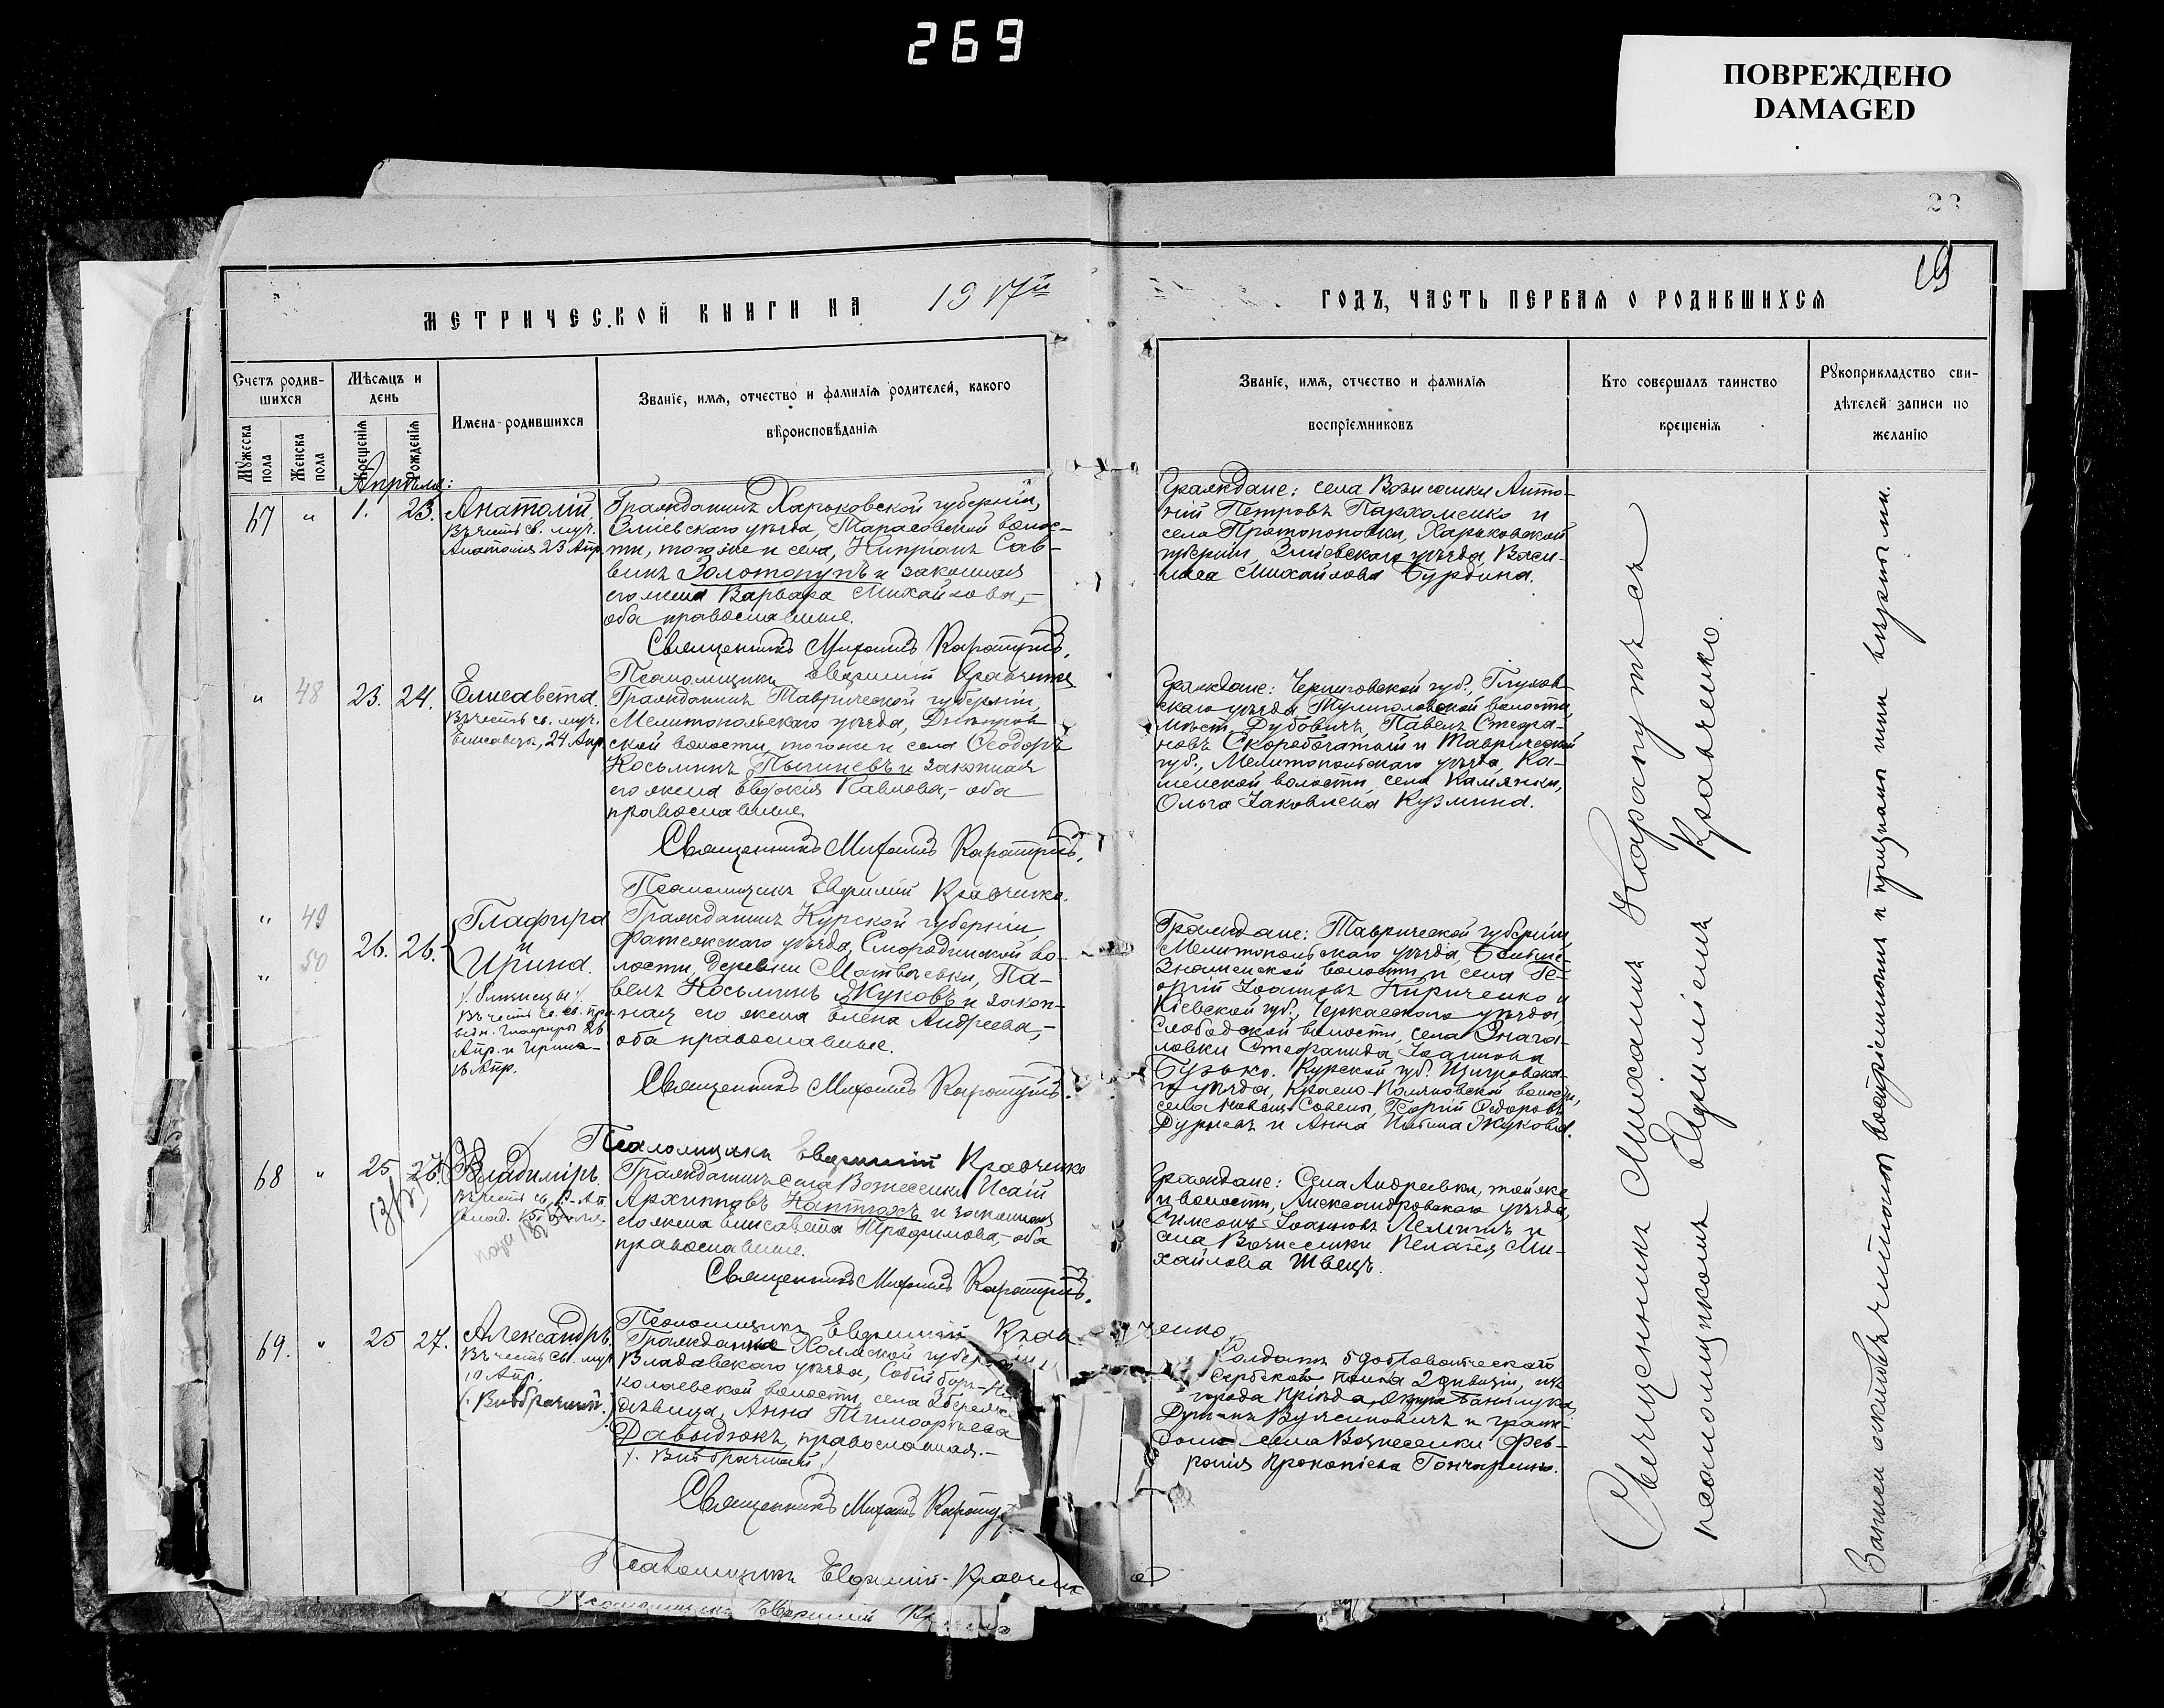 269
ПОВРЕЖДЕНО
DAMAGED
23
19
МЕТРИЧЕСКОЙ КНИГИ НА 1917й
ГОДЪ, ЧАСТЬ ПЕРВАЯ О РОДИВШИХСЯ
Счетъ родив-
шихся
Мужеска пола
Женска пола
Мѣсяцъ и
день
Крещенія
Рожденія
Имена родившихся
Званіе, имя, отчество и фамилія родителей, какого
вѣроисповѣданія
Званіе, имя, отчество и фамилія
воспріемниковъ
Кто совершалъ таинство
крещенія
Рукоприкладство сви-
дѣтелей записи по
желанію
Апрѣль:
67 " 1. 23.
Анатолій
Въ честь св. муч.
Анатолія 23 Апр.
Гражданинъ Харьковской губерніи,
Зміевскаго уѣзда, Тарасовской волос-
ти, того же и села, Кипріанъ Сав-
винъ Золотопупъ и законная
его жена Варвара Михайлова,-
оба православные.
Священникъ Михаилъ Карапутъ.
Псаломщикъ Евфимій Кравченко
Граждане: села Вознесенки Анто-
ній Петровъ Пархоменко и
села Протопоповки, Харьковской
губерніи, Зміевскаго уѣзда, Васи-
Михайлова Бурдина.
" 48 23. 24.
Елисавета.
Въ честь св. муч.
Елисаветы, 24 Апр.
Гражданинъ Таврической губерніи,
Мелитопольскаго уѣзда, Днѣпров-
ской волости, того же и села Ѳеодоръ
Косьминъ и законная
его жена Евдокія Павлова,- оба
православные.
Священникъ Михаилъ Карапутъ.
Псаломщикъ Евфимій Кравченко.
Граждане: Черниговской губ., Глухов-
скаго уѣзда, Тулиголовской волости,
мѣст. Дубовичъ, Павелъ Стефа-
новъ Скоробогатый и Таврической
губ., Мелитопольскаго уѣзда, Ка-
менской волости, села Камянки,
Ольга Іаковлева Кузмина.
" 49
" 50
26. 26.
Глафира
и
Ирина.
/. близнецы ./
Апр. и Ирины-
16 Апр.
Гражданинъ Курской губерніи,
Фатежскаго уѣзда, Смородинской во-
лости, деревни Матвѣевки, Па-
велъ Косьминъ Жуковъ и закон-
ная его жена Елена Андреева,-
оба православные.
Священникъ Михаилъ Карапутъ.
Псаломщикъ Евфимій Кравченко
Граждане: Таврической губерніи,
Мелитопольскаго уѣзда, Больше-
Знаменской волости и села Ге-
оргій Іоанновъ Кириченко и
Кіевской губ., Черкасскаго уѣзда,
Слободской волости, села
Стефанида Іоаннова
Гузько. Курской губ. Щигровска-
го уѣзда, волости,
села Георгій Ѳедоровъ
Дурневъ и Анна Жукова.
68 " 25 23.
13/IV
Владиміръ.
Гражданинъ села Вознесенки Исаій
Архиповъ Каптюхъ и законная
его жена Елисавета Трофимова,- оба
православные.
Священникъ Михаилъ Карапутъ.
Псаломщикъ Евфимій Кравченко.
Граждане: Села Андреевки, той же
и волости, Александровскаго уѣзда,
Симеонъ Іоанновъ и
села Вознесенки Пелагея Ми-
хайлова Швецъ.
69. " 25 27.
Александръ.
Въ честь св. муч.
10 Апр.
/. Внѣбрачный./
Гражданка Холмской губерніи,
Владавскаго уѣзда,
колаевской волости, села
дѣвица, Анна Тимофѣева
Давыдюкъ, православная.-
/. Внѣбрачный ./
Священникъ Михаилъ Карапутъ
Псаломщикъ Евфимій Кравченко
Солдатъ 5 добровольческаго
Сербскаго полка 2 дивизіи, изъ
города
и граж-
данка села Вознесенки Фев-
ронія Прокопіева Гончаренко.
Псаломщикъ Евфимій
Священникъ Михаилъ Карапутъ съ
псаломщикомъ Евфиміемъ Кравченко.